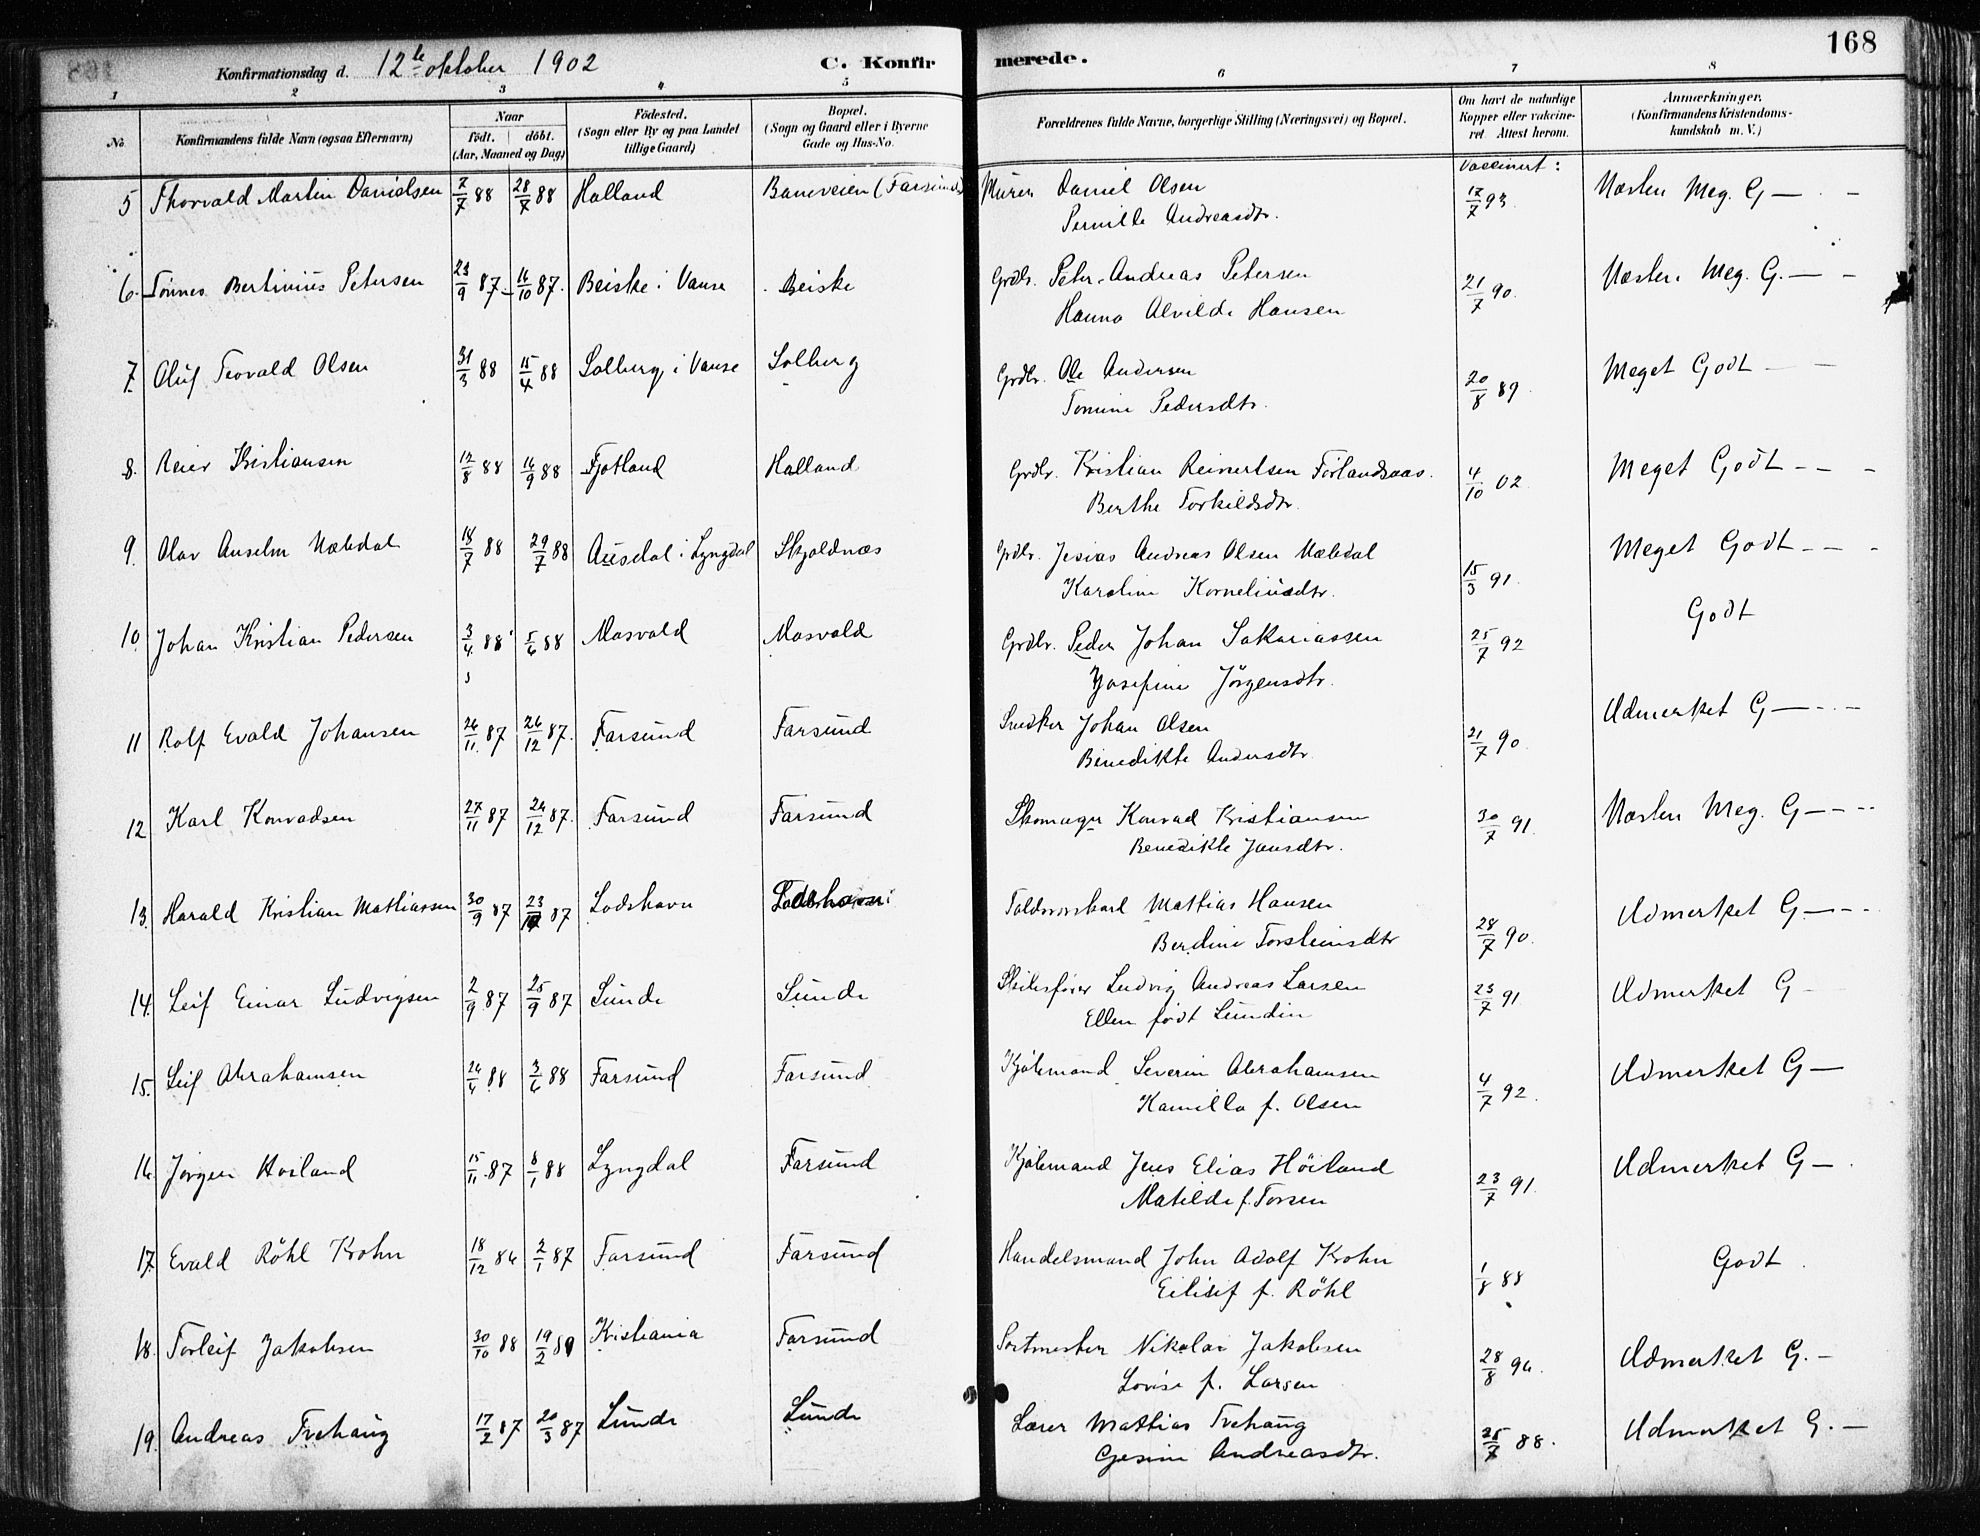 168
Konfirmationsdag d. 12te oktober 1902 C. Konfirmerede.
1 2 3 4 5 6 7 8
No. Konfirmandens fulde Navn (ogsaa Efternavn) Naar født. døbt. (Aar, Maaned og Dag) Fødested. (Sogn eller By og paa Landet tillige Gaard) Bopæl. (Sogn og Gaard eller i Byerne Gade og Hus-No. Forældrenes fulde Navne, borgerlige Stilling (Næringsvei) og Bopæl. Om havt de naturlige Kopper eller vaccineret. Attest herom. Anmærkninger. (Konfirmandens Kristendomskundskab m. V.)
Vaccinert:
5 Thorvald Martin Danielsen 7/7 88 28/7 88 Halland Baneveien (Farsund) Murer Daniel Olsen 17/7 93 Næsten Meg. G —
Pernille Andreasdtr.
6. Tønnes Bertinius Petersen 23/9 87 16/10 87. Beiske i Vanse Beiske Grdbr. Peter Andreas Petersen 21/7 90. Næsten Meg. G. —
Hanna Alvilde Hansen
7. Oluf Teovald Olsen 31/3 88 15/4 88 Solberg i Vanse Solberg Grdbr. Ole Andersen 20/8 89. Meget Godt
Tomine Pedersdtr.
8. Reier Kristiansen 12/8 88 16/9 88 Fjotland Halland Grdbr. Kristian Reinertsen Förlandsaas. 4/10 02 Meget Godt
Berthe Torkildsdtr.
9. Olav Anselm Næbdal 18/7 88 29/7 88 Ausdal i Lyngdal Skjoldnæs Grdbr. Jesias Andreas Olsen Næbdal 15/3 91. Meget Godt
Karoline Korneliusdtr.
10. Johan Kristian Pedersen 3/4 88 5/6 88 Mosvold Mosvold Grdbr. Peder Johan Sakariassen 25/7 92 Godt
Josefine Jörgensdtr.
11 Rolf Evald Johansen 26/11 87 26/12 87. Farsund Farsund Snedker Johan Olsen 21/7 90. Udmerket G —
Benedikte Andersdtr.
12 Karl Konradsen 27/11 87 26/12 87. Farsund Farsund Skomager Konrad Kristiansen 30/7 91. Næsten Meg. G —
Benedikte Jansdtr.
13. Harald Kristian Mathiassen 30/9 87 23/10 87 Lodshavn Lodshavn Toldroerskarl Mattias Hansen 28/7 90. Udmerket G —
Berdine Torsteinsdtr
14. Leif Einar Ludvigsen 2/9 87 25/9 87 Lunde Lunde Skibsfører Ludvig Andreas Larsen 23/7 91 Udmerket G
Ellen født Lundin
15. Leif Abrahamsen 24/4 88 3/6 88 Farsund Farsund Kjøbmand Severin Abrahamsen 4/7 92. Udmerket G —
Kamilla f. Olsen
16. Jørgen Høiland 15/11 87 8/1 88 Lyngdal Farsund Kjøbmand Jens Elias Höiland 23/7 91. Udmerket G —
Matilde f. Torsen
17. Evald Röhl Krohn 18/12 86 2/1 87 Farsund Farsund Handelsmand John Adolf Krohn 1/8 88 Godt
Eilisif f. Röhl
18. Torleif Jakobsen 30/10 88 19/2 89 Kristiania Farsund Sortmester Nikolai Jakobsen 28/8 96. Udmerket G. —
Lovise f. Larsen
19. Andreas Trehaug 17/2 87 20/3 87 Lunde Lunde Lærer Mattias Trehaug 25/7 88. Udmerket G. —
Gjesine Andreasdtr.